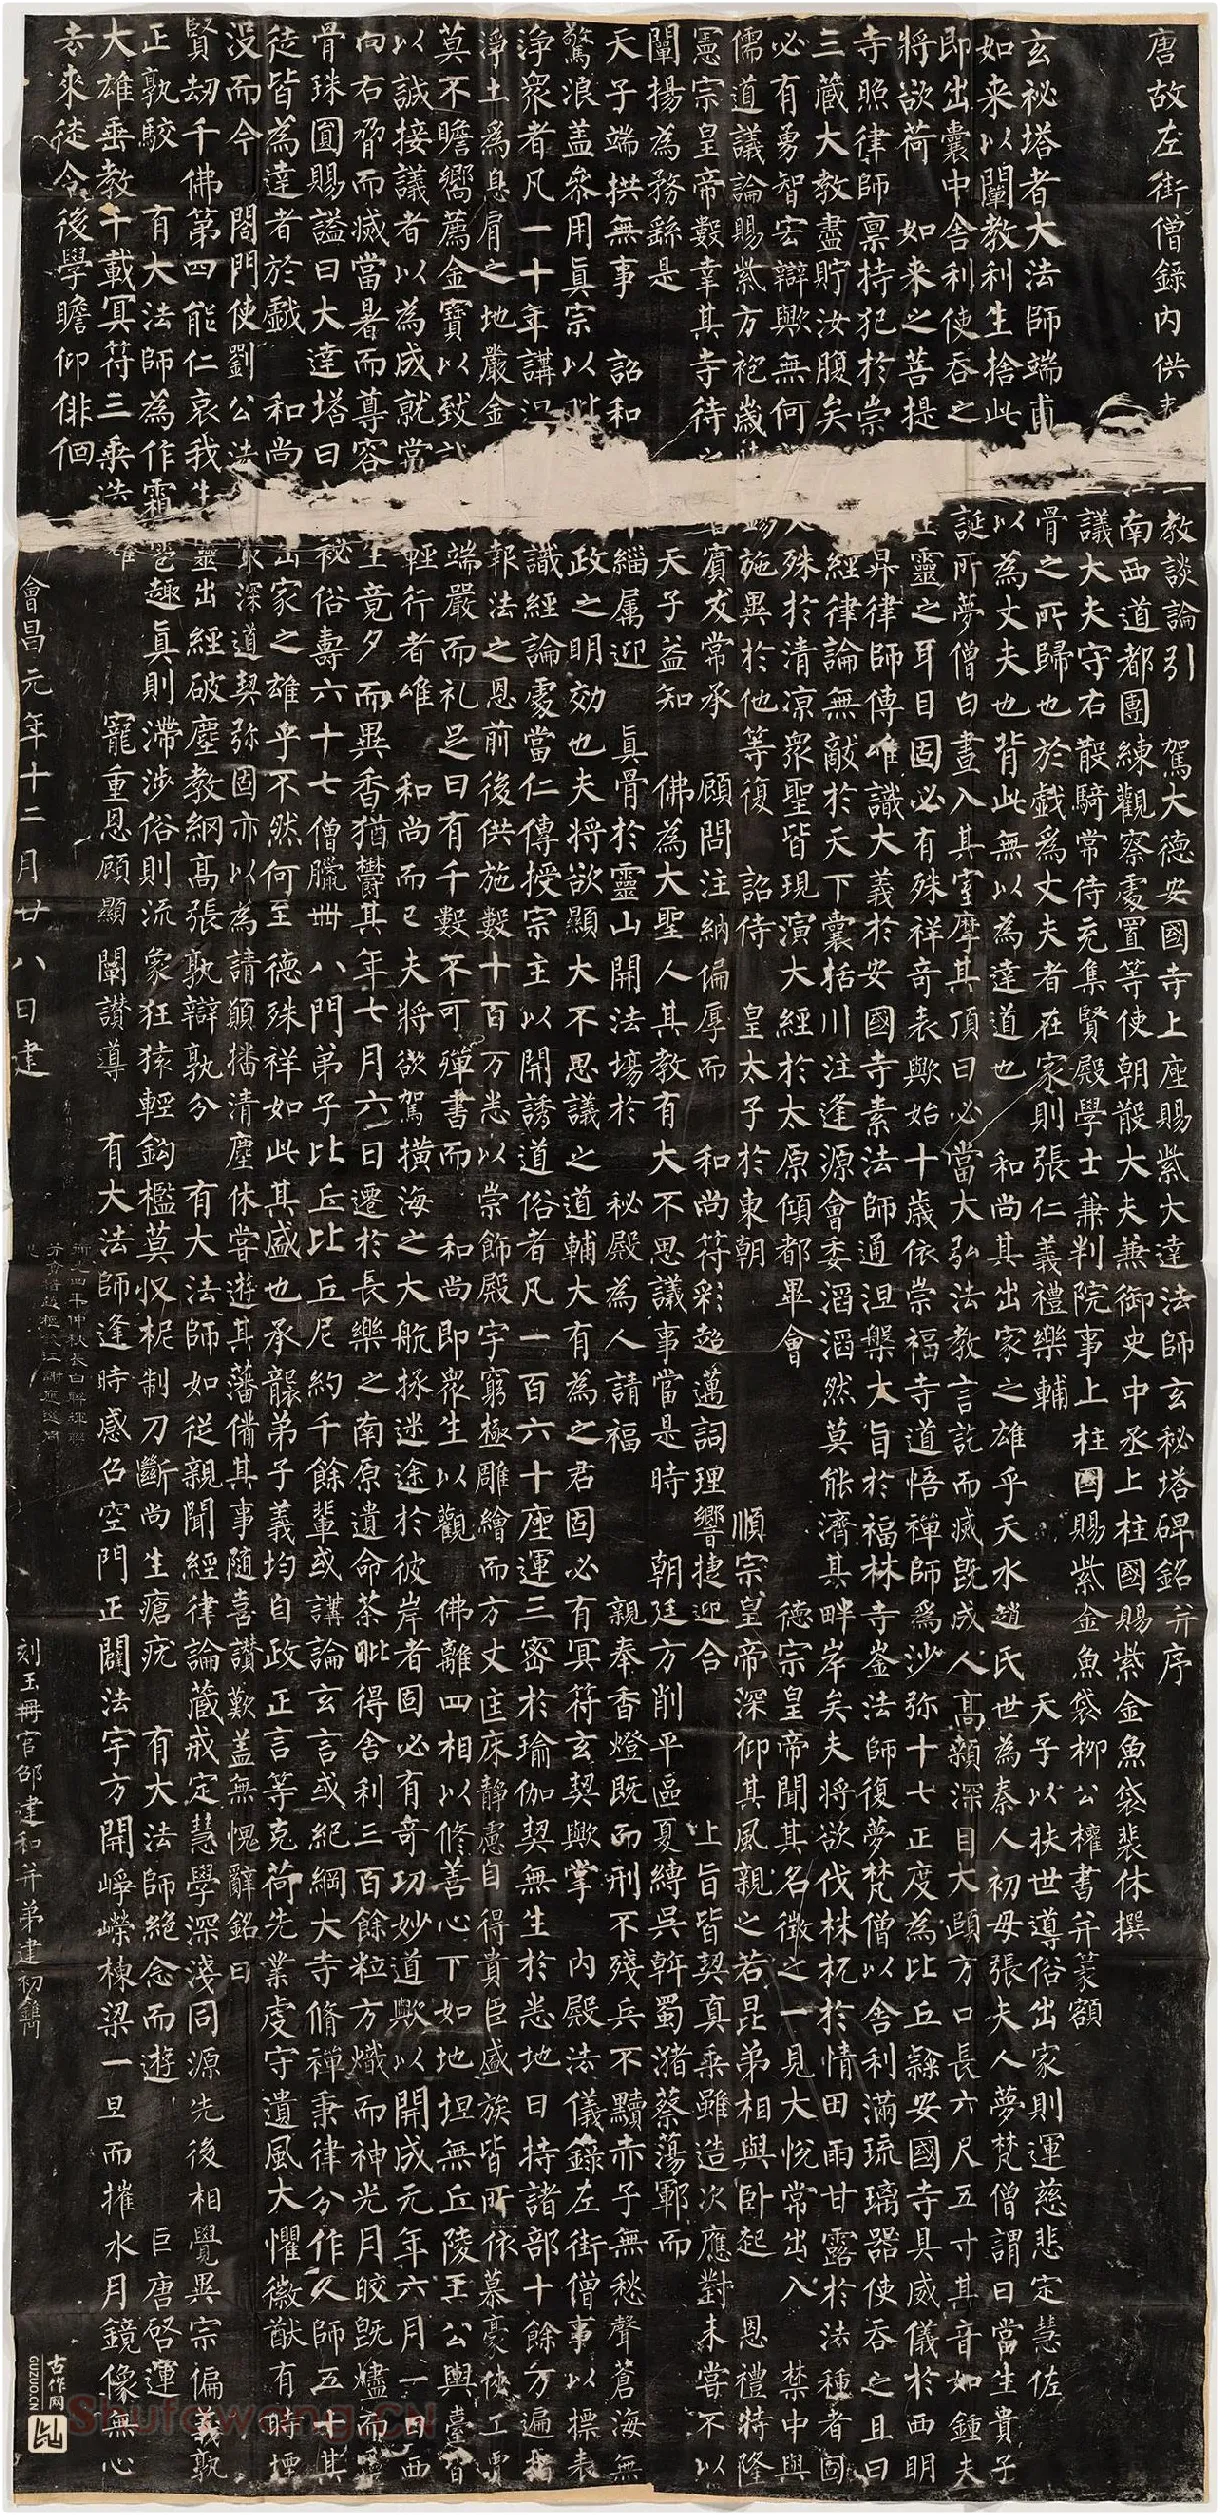 唐故左街僧錄内供 教談論引 駕大德安國寺上座賜紫大達法師玄秘塔碑銘并序
南西道都團練觀察處置等使朝散大夫兼御史中丞上柱國賜紫金魚袋裴休撰
議大夫守右散騎常侍充集賢殿學士兼判院事上柱國賜紫金魚袋柳公權書并篆額
玄祕塔者大法師端甫 骨之所歸也於戲爲丈夫者在家則張仁義禮樂輔 天子以扶世導俗出家則運慈悲定慧佐
如来以闡教利生捨此 以為丈夫也背此無以為達道也 和尚其出家之雄乎天水趙氏世為秦人初母張夫人夢梵僧謂曰當生貴子
即出囊中舍利使吞之 誕所夢僧白晝入其室摩其頂曰必當大弘法教言訖而滅既成人高顙深目大頤方口長六尺五寸其音如鍾夫
將欲荷 如来之菩提 靈之耳目固必有殊祥奇表歟始十歳依崇福寺道悟禪師爲沙弥十七正度為比丘隸安國寺具威儀於西明
寺照律師稟持犯於崇 昇律師傳唯識大義於安國寺素法師通涅槃大旨於福林寺崟法師復夢梵僧以舍利滿琉璃器使吞之且曰
三藏大教盡貯汝腹矣 經律論無敵於天下囊括川注逢源會委滔滔然莫能濟其畔岸矣夫將欲伐株杌於情田雨甘露於法種者固
必有勇智宏辯歟無何 殊於清涼衆聖皆現演大經於太原傾都畢會 德宗皇帝聞其名徵之一見大悅常出入 禁中與
儒道議論賜紫方袍歳 錫施異於他等復 詔侍 皇太子於東朝 順宗皇帝深仰其風親之若昆弟相與卧起 恩禮特隆
憲宗皇帝數幸其寺待之 賓友常承 顧問注納偏厚而 和尚符彩超邁詞理響捷迎合 上旨皆契真乘雖造次應對未嘗不以
闡揚為務繇是 天子益知 佛為大聖人其教有大不思議事當是時 朝廷方削平區夏縛吳斡蜀瀦蔡蕩鄆而
天子端拱無事 詔和 緇属迎 真骨於靈山開法場於 秘殿為人請福 親奉香燈既而刑不殘兵不黷赤子無愁聲蒼海無
驚浪盖叅用真宗以 政之明効也夫將欲顯大不思議之道輔大有為之君固必有冥符玄契歟掌 内殿法儀錄左街僧事以標表
淨衆者凡一十年講 識經論處當仁傳授宗主以開誘道俗者凡一百六十座運三密於瑜伽契無生於悉地日持諸部十餘万遍指
淨土爲息肩之地嚴金 報法之恩前後供施數十百万悉以崇飾殿宇窮極雕繪而方丈匡床静慮自得貴臣盛族皆所依慕豪俠工賈
莫不瞻嚮薦金寶以致 端嚴而礼足日有千數不可殫書而 和尚即衆生以觀 佛離四相以修善心下如地坦無丘陵王公輿臺皆
以誠接議者以為成就常 輕行者唯 和尚而已夫將欲駕橫海之大航拯迷途於彼岸者固必有奇功妙道歟以開成元年六月一日西
向右脅而滅當暑而尊容 生竟夕而異香猶鬱其年七月六日遷於長樂之南原遺命荼毗得舍利三百餘粒方熾而神光月皎既燼而靈
骨珠圓賜謚曰大達塔曰 秘俗壽六十七僧臘卌八門弟子比丘比丘尼約千餘輩或講論玄言或紀綱大寺脩禪秉律分作人師五十其
徒皆為達者於戲 和尚 出家之雄乎不然何至德殊祥如此其盛也承襲弟子義均自政正言等克荷先業虔守遺風大懼徽猷有時堙
没而今 閤門使劉公法 深道契弥固亦以為請願播清塵休嘗遊其藩備其事隨喜讚歎盖無愧辭銘曰
賢劫千佛第四能仁哀我生靈出經破塵教網高張孰辯孰分 有大法師如從親聞經律論藏戒定慧學深淺同源先後相覺異宗偏義孰
正孰駮 有大法師為作霜雹趣真則滯涉俗則流象狂猿輕鈎檻莫収柅制刀斷尚生瘡疣 有大法師絕念而遊 巨唐啓運
大雄垂教千載冥符三乘迭耀 寵重恩顧顯闡讚導 有大法師逢時感召空門正闢法宇方開崢嶸棟梁一旦而摧水月鏡像無心
去來徒令後學瞻仰俳佪
會昌元年十二月廿八日建 刻玉冊官邵建和并弟建初鐫
古作网
GUZUO.CN
Shufawang.CN